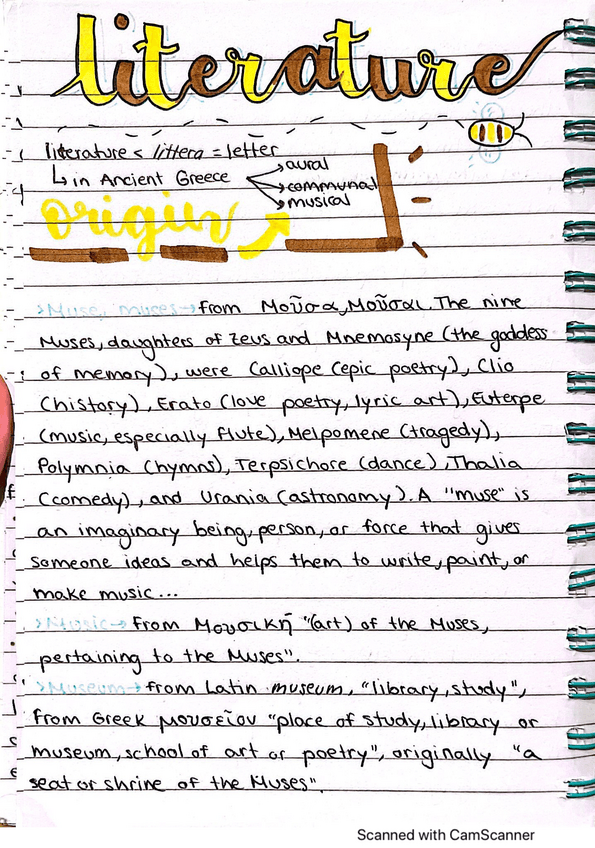 literature
literature < littera = letter
↳ in Ancient Greece → aural
→ communal
→ musical
origin
>Muse, muces→from Μοῦσα, Μοῦσαι. The nine
Muses, daughters of Zeus and Mnemosyne (the goddess
of memory), were Calliope (epic poetry), Clio
(history), Erato (love poetry, lyric art), Euterpe
(music, especially flute), Melpomene (tragedy),
Polymnia (hymns), Terpsichore (dance), Thalia
(comedy), and Urania (astronomy). A "muse" is
an imaginary being, person, or force that gives
someone ideas and helps them to write, paint, or
make music...
>Music→ from Μουσικη̃ "(art) of the Muses,
pertaining to the Muses".
>Museum→ from Latin museum, "library, study",
from Greek μουσεῖον "place of study, library or
museum, school of art or poetry", originally "a
seat or shrine of the Muses".
Scanned with CamScanner